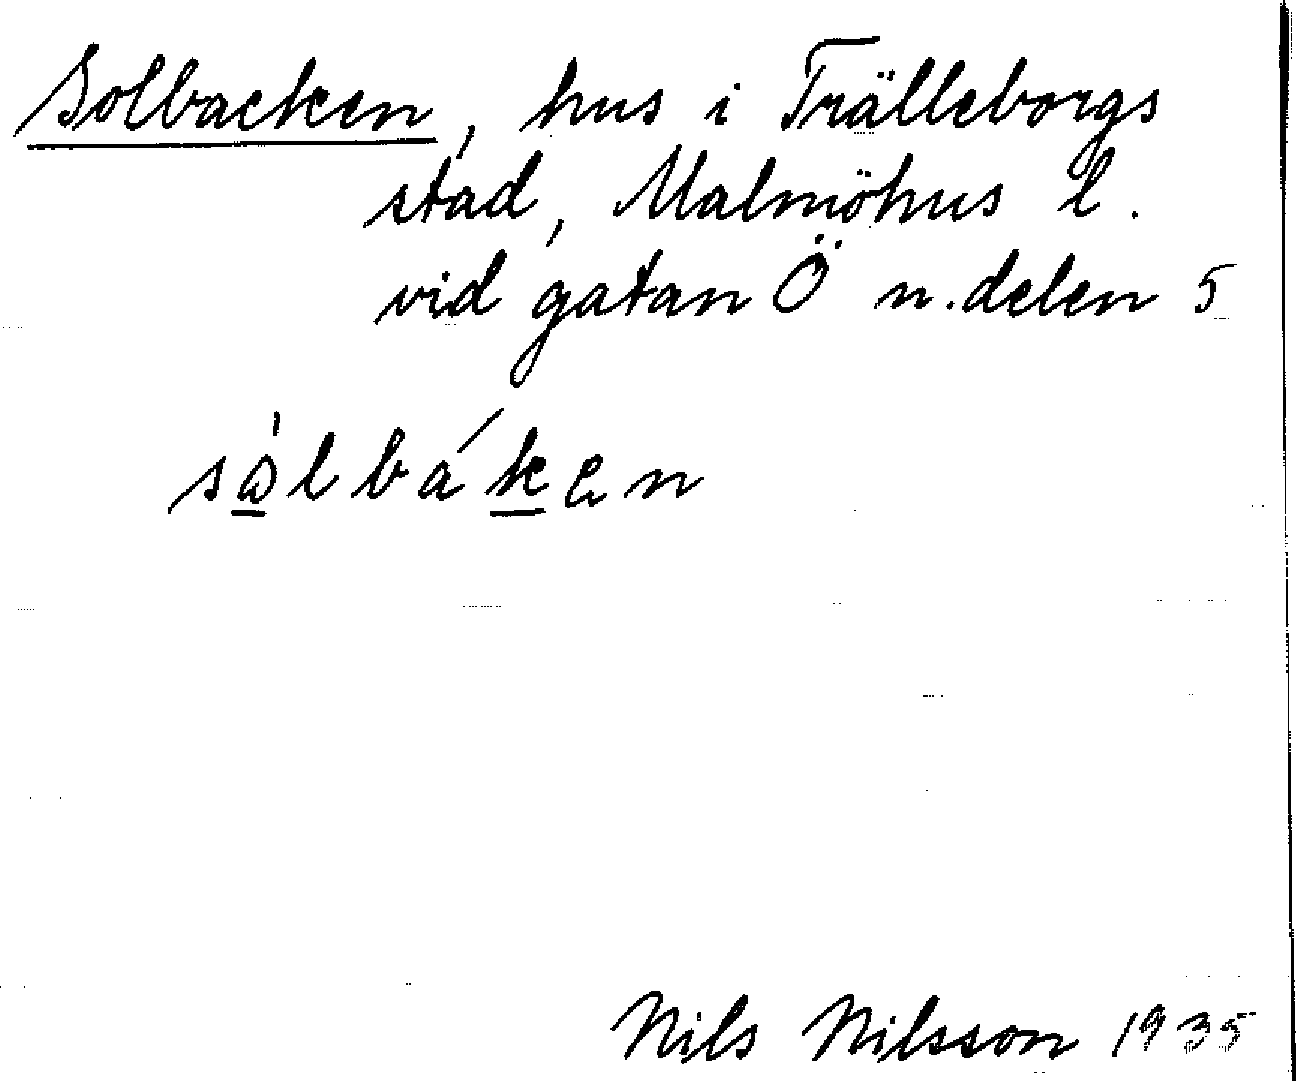 Solbacken, hus i Trälleborgs
stad, Malmöhus l.
vid gatan Ö n. delen 5
sòlbáken
Nils Nilsson 1935